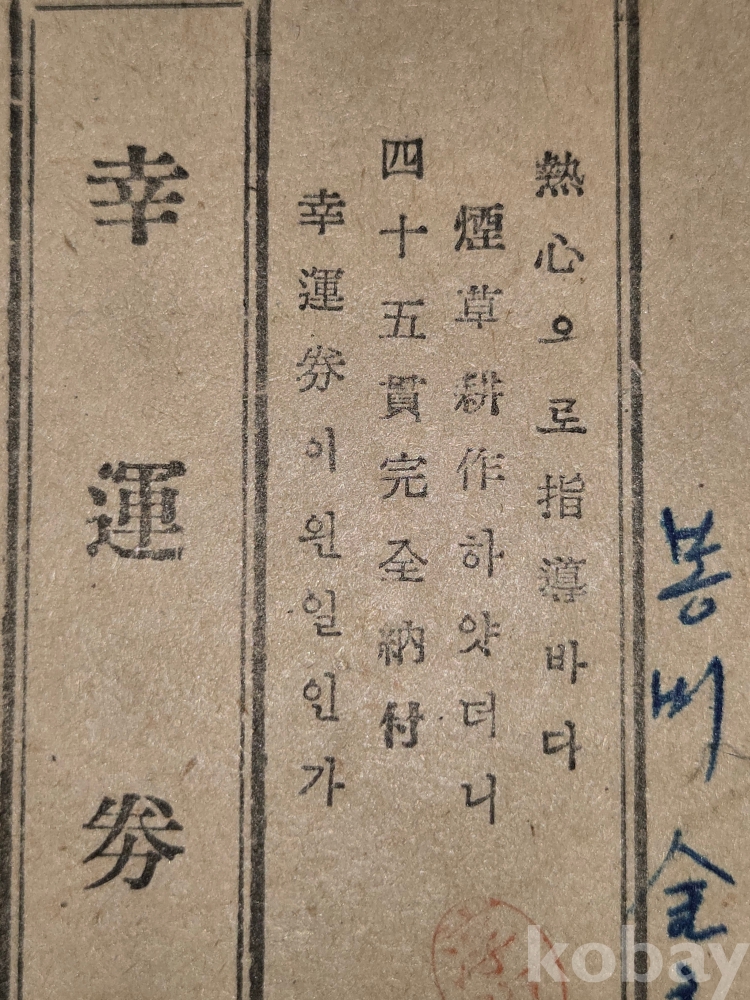 봉비 金
熱心오로指導바다
煙草耕作하얏더니
四十五貫完全納付
幸運券이왼일인가
幸運券
kobay